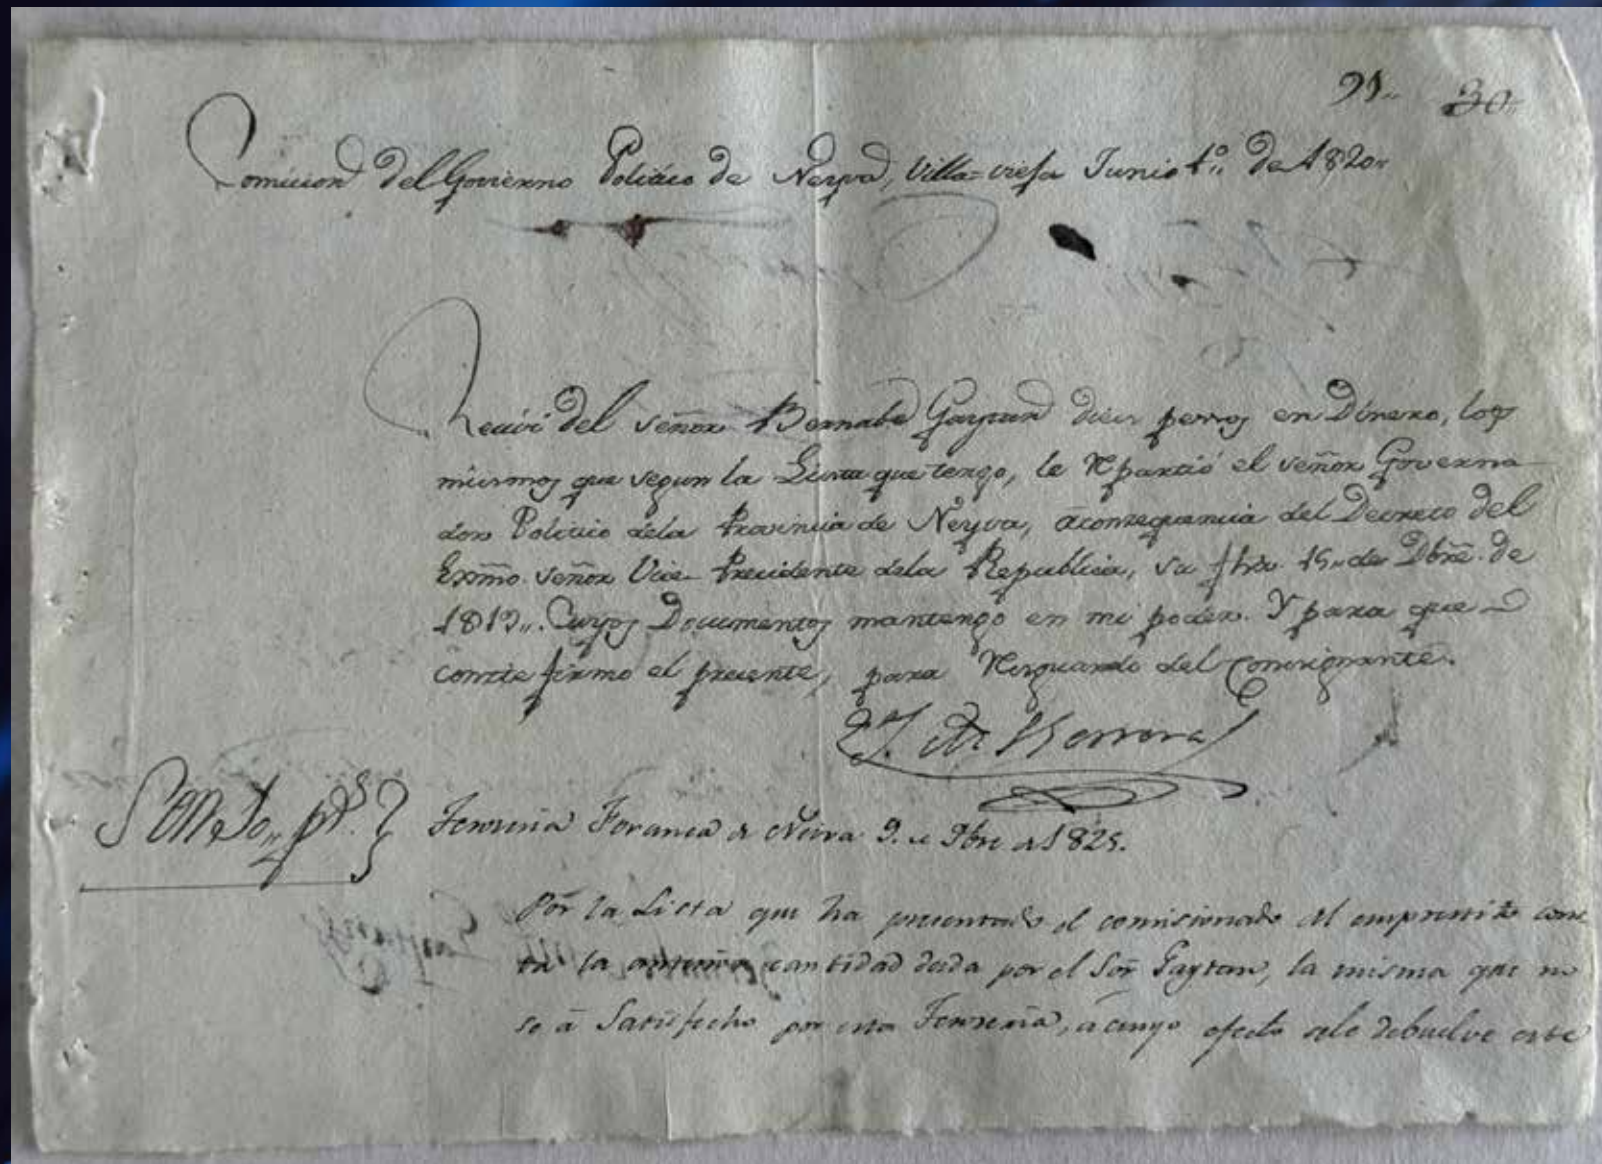 91.. 30..
Comicion del Govierno Politico de Neyva, Villa=viefa Junio 1º.. de 1820..
Recivi del señor Bernabe Gaytan dies pesos en Dinero, los
mismos que segun la Lista que tengo, le Repartió el señor Governa
dor Politico dela Provincia de Neyva, aconsequencia del Decreto del
Exmõ. señor Vice-Precidente dela Republica, su fha. 15.. de Dbrẽ. de
1819.. Cuyos Documentos mantengo en mi poder. Y para que
conste firmo el precente, para Resguardo del Concignante.
J. de Herrera
Son 10.. ps.
Tesoreria Foranea de Neiva 9. de 9bre de 1825.
Por la Lista que ha presentado el comicionado del emprestito cons
ta la anterior cantidad dada por el Sor̃ Gaytan, la misma que no
se a Satisfecho por esta Tesoreria, a cuyo efecto selo debuelve este